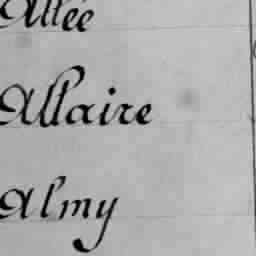 Allée
Allaire
Almy